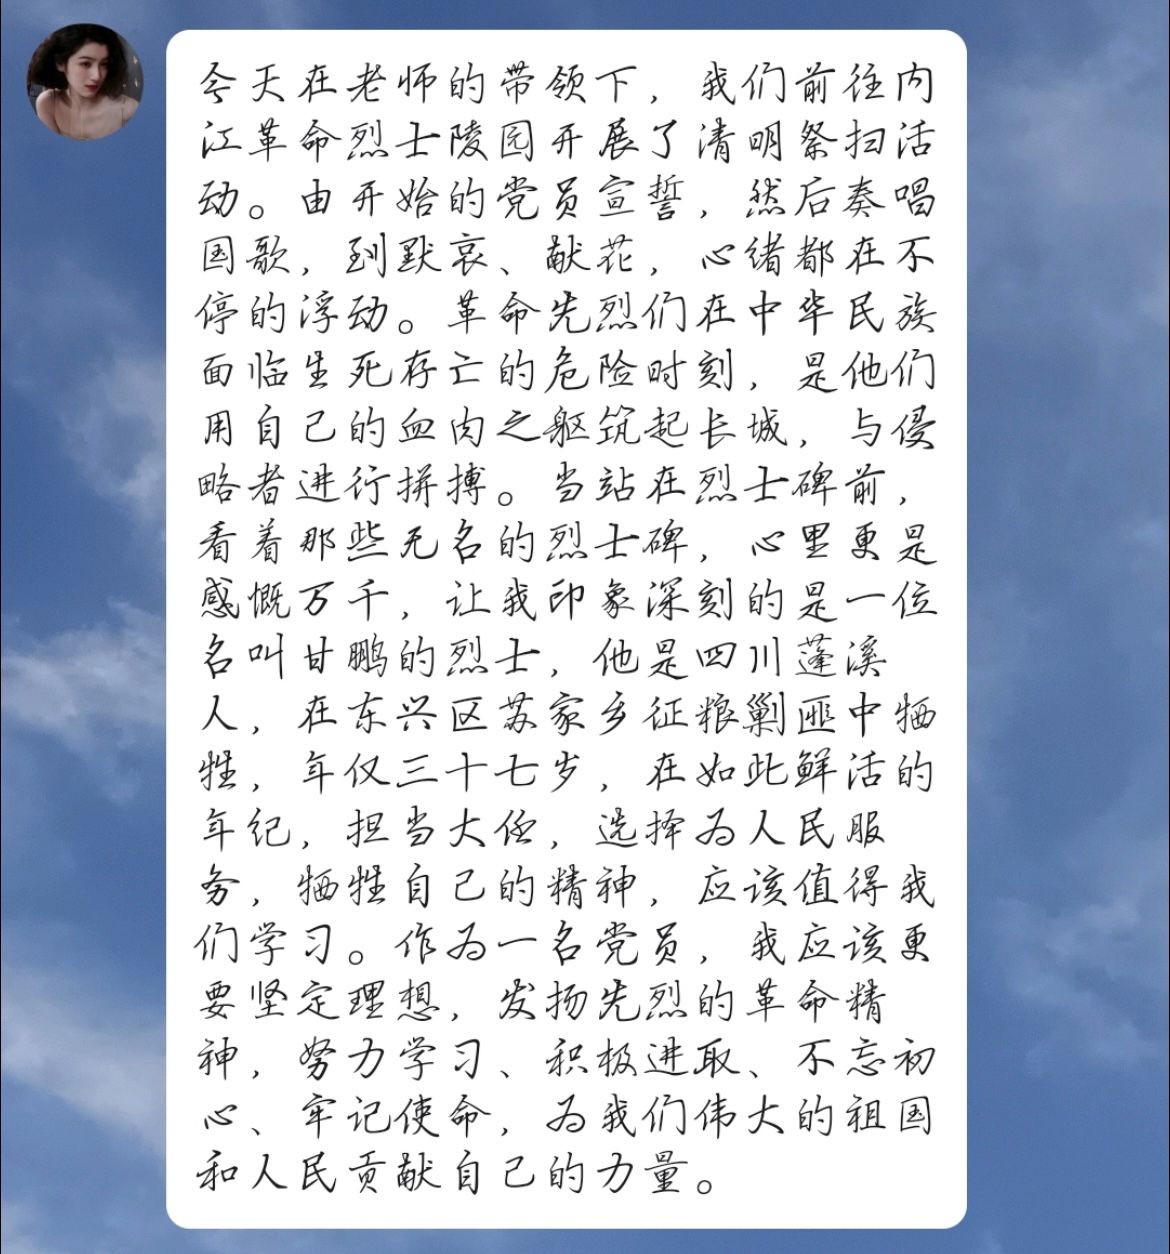 今天在老师的带领下，我们前往内
江革命烈士陵园开展了清明祭扫活
动。由开始的党员宣誓，然后奏唱
国歌，到默哀、献花，心绪都在不
停的浮动。革命先烈们在中华民族
面临生死存亡的危险时刻，是他们
用自己的血肉之躯筑起长城，与侵
略者进行拼搏。当站在烈士碑前，
看着那些无名的烈士碑，心里更是
感慨万千，让我印象深刻的是一位
名叫甘鹏的烈士，他是四川蓬溪
人，在东兴区苏家乡征粮剿匪中牺
牲，年仅三十七岁，在如此鲜活的
年纪，担当大任，选择为人民服
务，牺牲自己的精神，应该值得我
们学习。作为一名党员，我应该更
要坚定理想，发扬先烈的革命精
神，努力学习、积极进取、不忘初
心、牢记使命，为我们伟大的祖国
和人民贡献自己的力量。